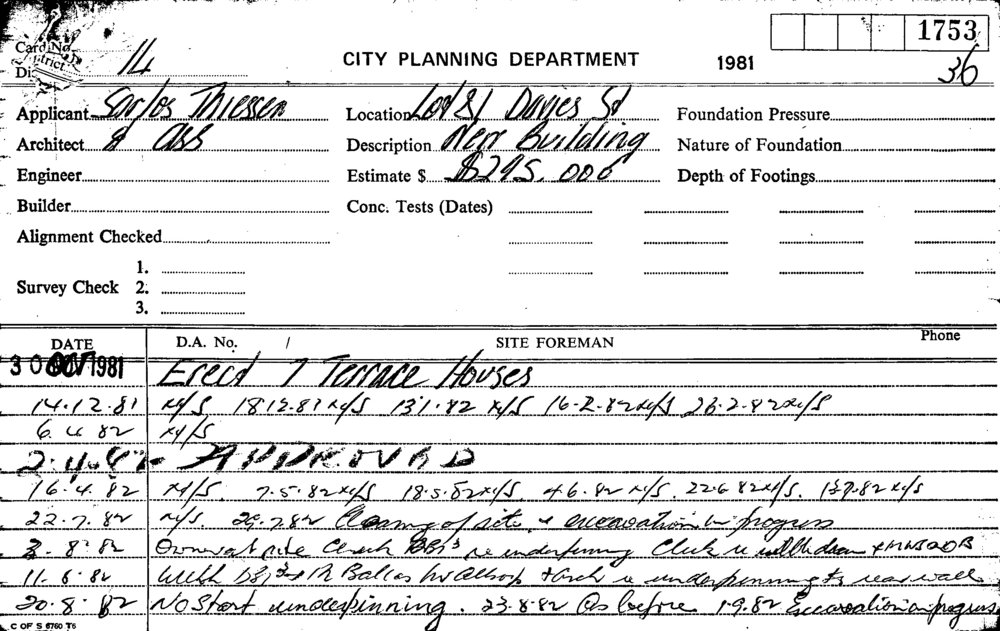 1753
Card No.
District 14
CITY PLANNING DEPARTMENT 1981 36
Applicant Sarlos Thiessen Location Davies St Foundation Pressure
Architect & Ass Description New Building Nature of Foundation
Engineer Estimate $ $295,000 Depth of Footings
Builder Conc. Tests (Dates)
Alignment Checked
1.
Survey Check 2.
3.
DATE D.A. No. / SITE FOREMAN Phone
30 OCT 1981 Erect 7 Terrace Houses
14.12.81 N/S 18.12.81 N/S 13.1.82 N/S 16.2.82 N/S 23.2.82 N/S
6.4.82 N/S
2.4.82 APPROVED
16.4.82 N/S. 7.5.82 N/S 18.5.82 N/S 4.6.82 N/S. 22.6.82 N/S. 13.7.82 N/S
22.7.82 N/S. 29.7.82 Clearing of site & excavation in progress
3.8.82 Owner at site Check re underpinning
11.8.82 with + re underpinning to rear wall
20.8.82 No Start underpinning. 23.8.82 As before 1.9.82 Excavation in progress
C OF S 6760 T6